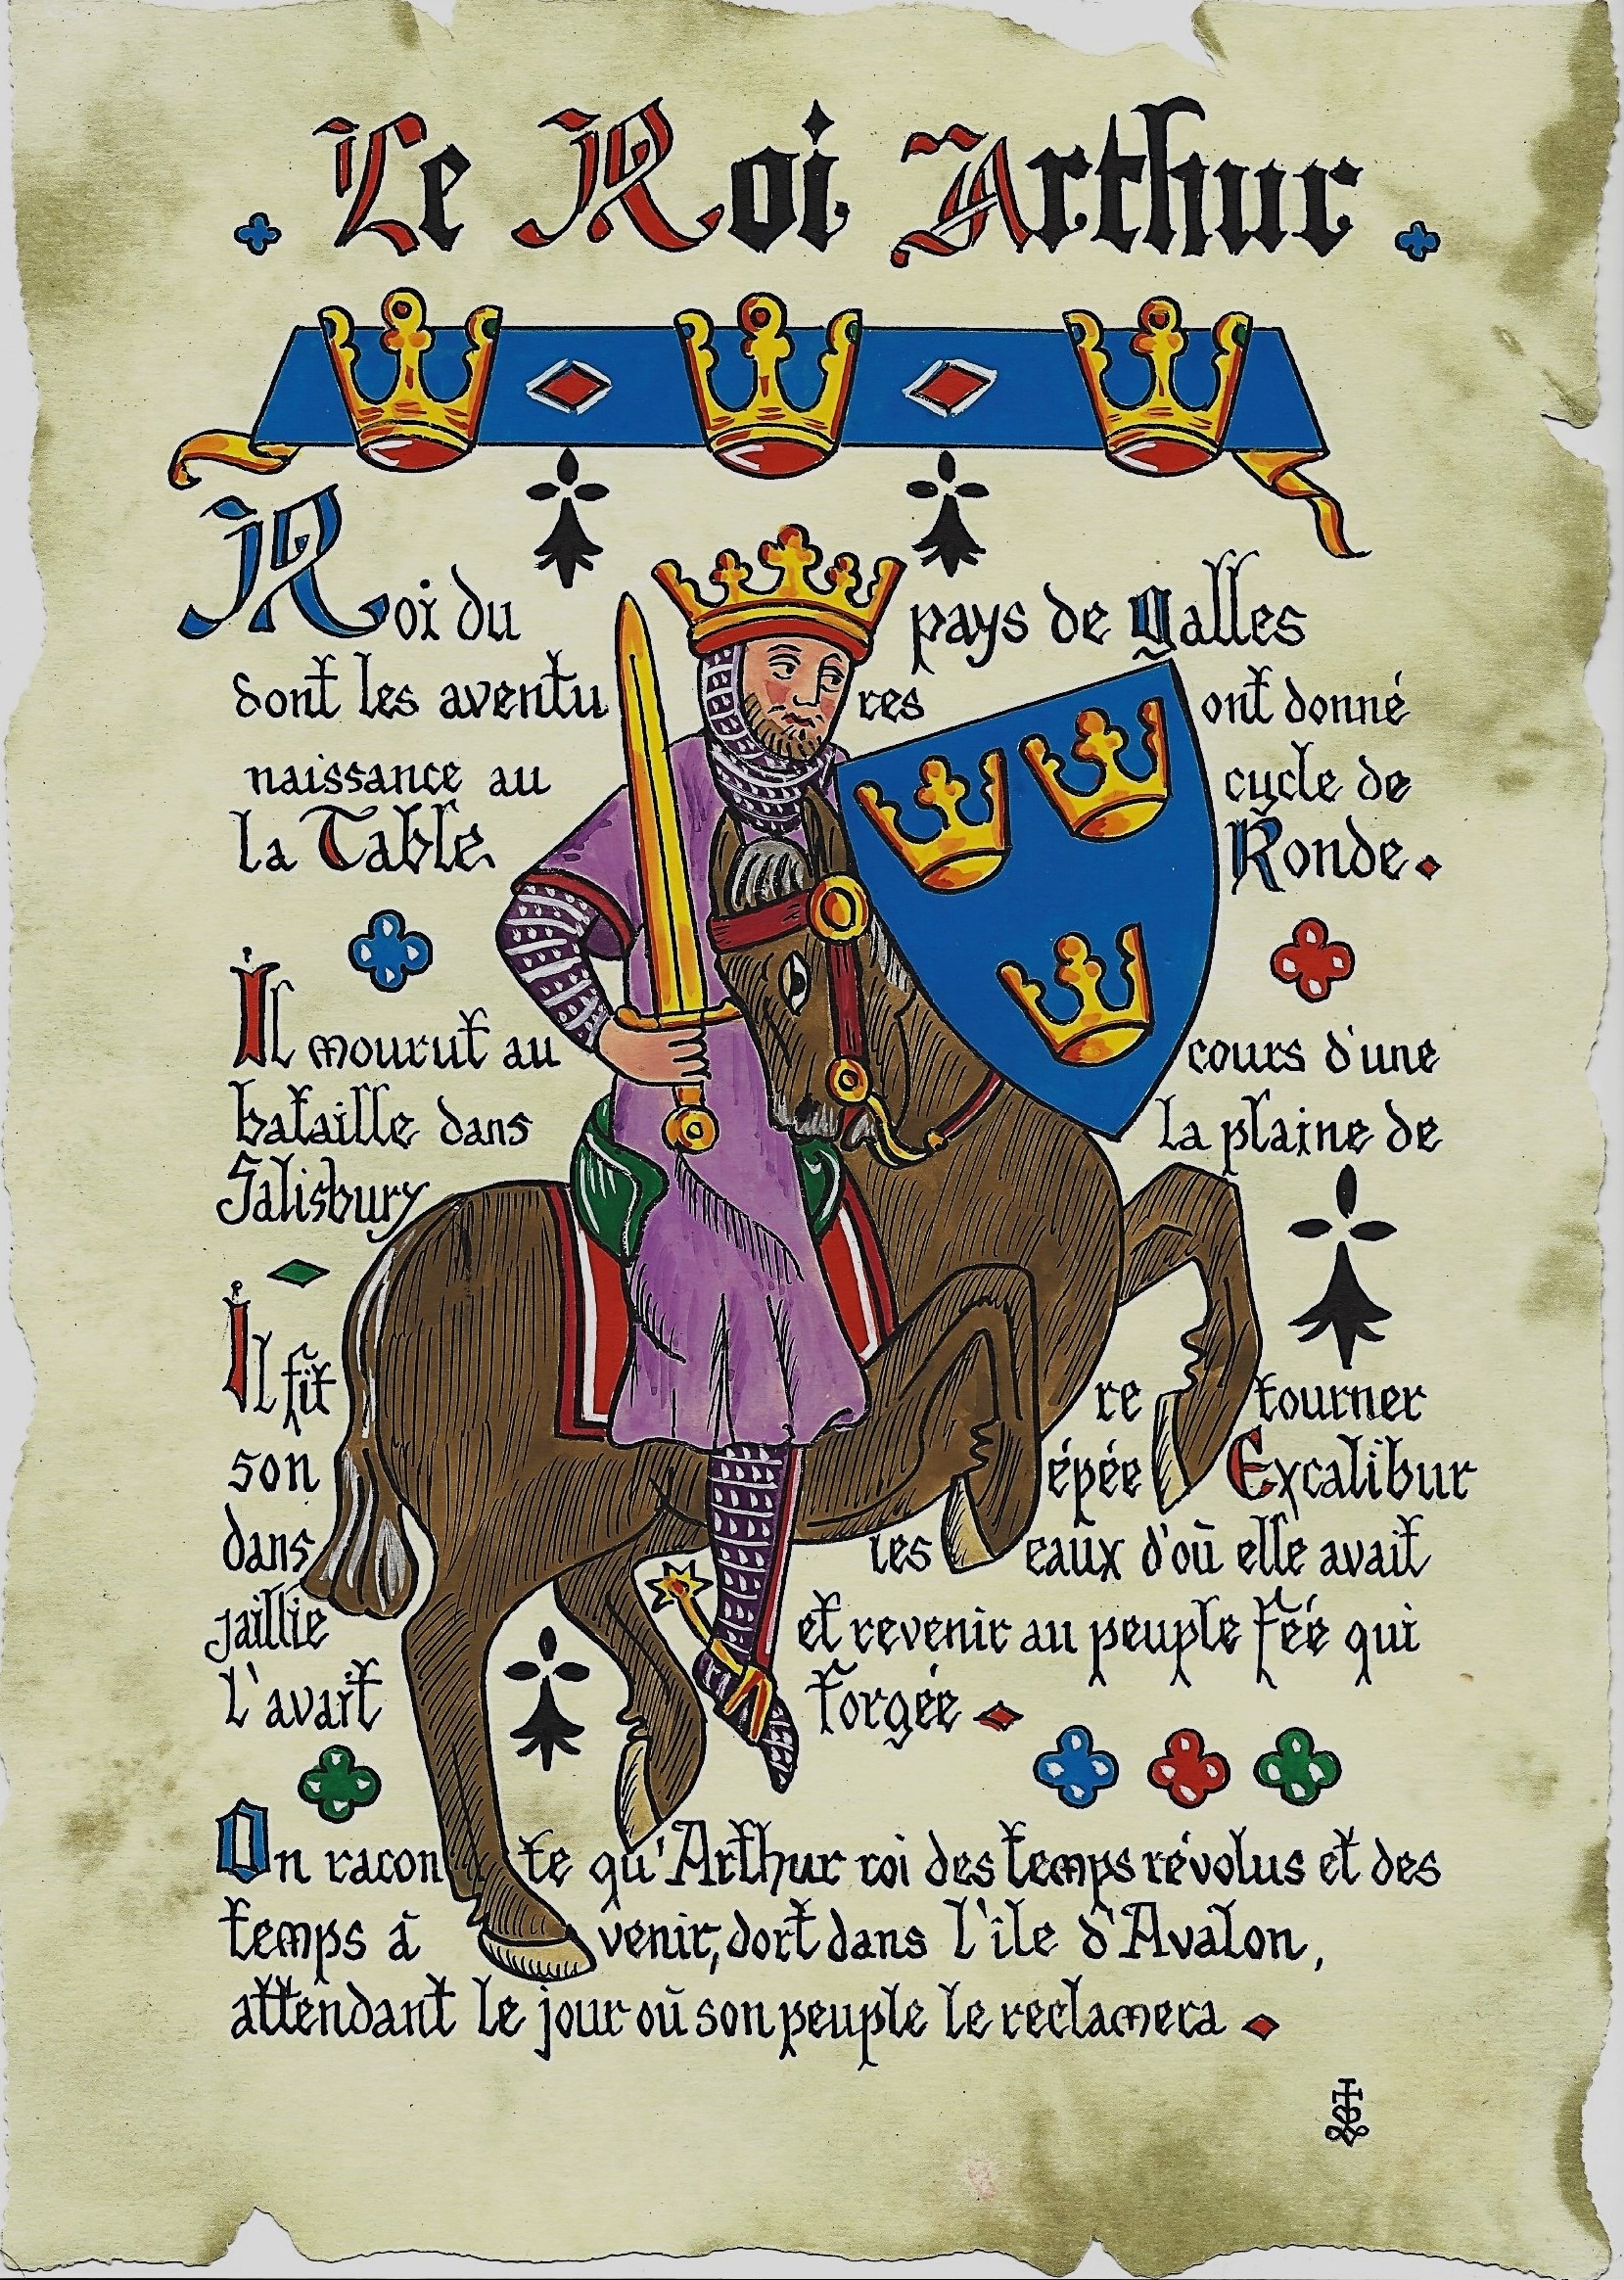 Le Roi Arthur
Roi du pays de galles
dont les aventures ont donné
naissance au cycle de
la Table Ronde
Il mourut au cours d'une
bataille dans la plaine de
Salisbury
Il fit retourner
son épée Excalibur
dans les eaux d'où elle avait
jaillie et revenir au peuple fée qui
l'avait forgée
On raconte qu'Arthur roi des temps révolus et des
temps à venir, dort dans l'île d'Avalon,
attendant le jour où son peuple le reclamera